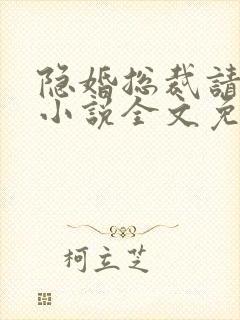 隐婚总裁請
小说全文免
柯立芝